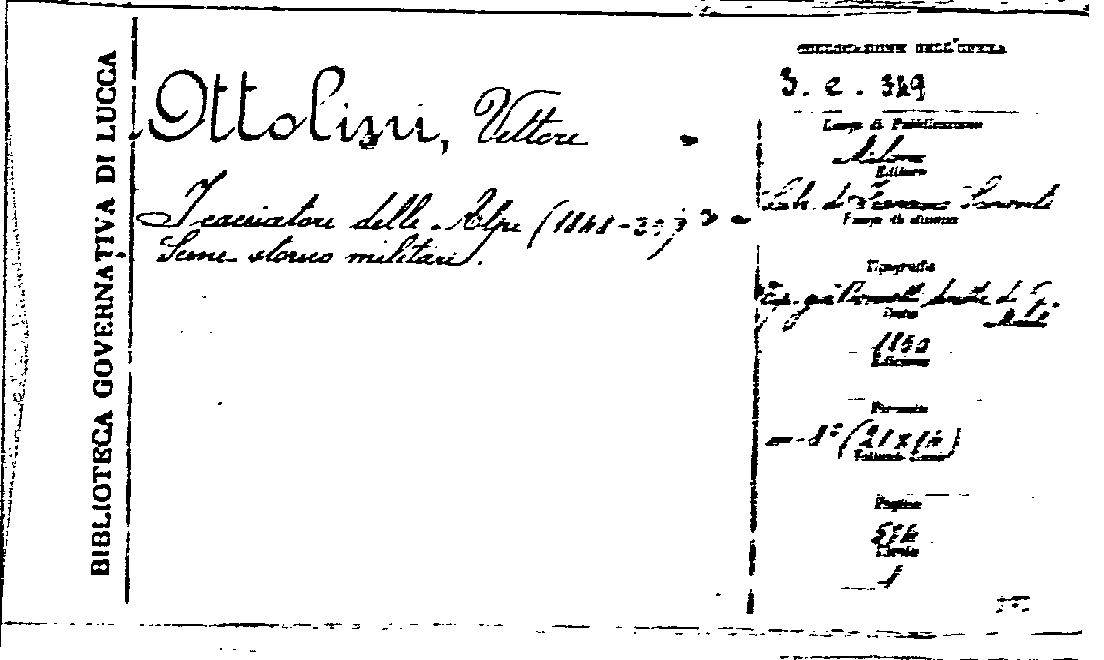 BIBLIOTECA GOVERNATIVA DI LUCCA
Ottolini, Vittore
I cacciatori delle Alpi (1848-59)
Scene storico militari.
COLLOCAZIONE DELL'OPERA
3. e. 349
Luogo di Pubblicazione
Milano
Editore
Luogo di stampa
Tipografia
Data
1860
Edizione
Formato
8° (21 x 14)
Pagine
574
1